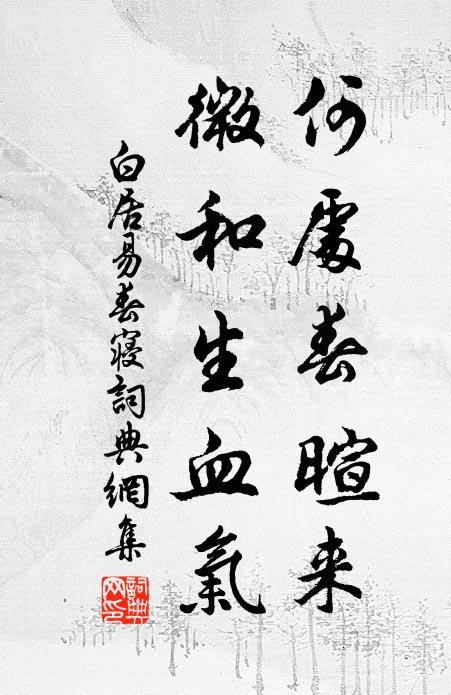 何處春暄来
微和生血氣
白居易春寢詞典網集
詞典
网印